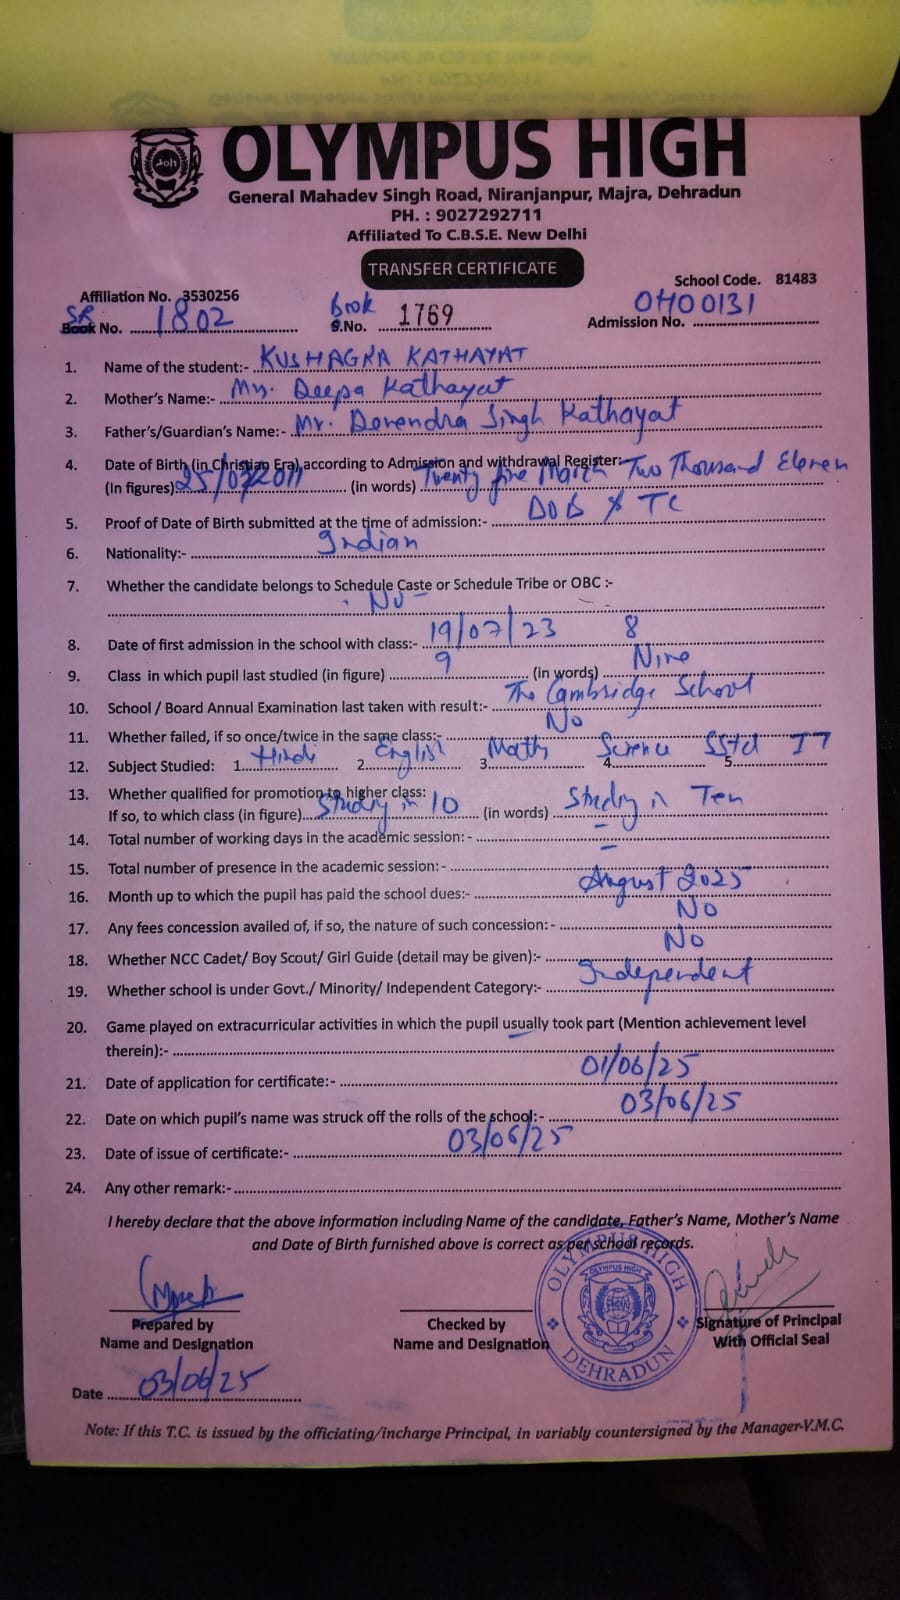 OLYMPUS HIGH
General Mahadev Singh Road, Niranjanpur, Majra, Dehradun
PH. : 9027292711
Affiliated To C.B.S.E. New Delhi
TRANSFER CERTIFICATE
School Code. 81483
Affiliation No. 3530256
SR Book No. 1802 Book S.No. 1769 Admission No. OH00131
1. Name of the student:- KUSHAGRA KATHAYAT
2. Mother's Name:- Mrs. Deepa Kathayat
3. Father's/Guardian's Name:- Mr. Devendra Singh Kathayat
4. Date of Birth (in Christian Era), according to Admission and withdrawal Register:-
(In figures) 25/03/2011 (in words) Twenty five March Two Thousand Eleven
5. Proof of Date of Birth submitted at the time of admission:- DOB & TC
6. Nationality:- Indian
7. Whether the candidate belongs to Schedule Caste or Schedule Tribe or OBC :-
No
8. Date of first admission in the school with class:- 19/07/23 8
9. Class in which pupil last studied (in figure) 9 (in words) Nine
10. School / Board Annual Examination last taken with result:- The Cambridge School
11. Whether failed, if so once/twice in the same class:- No
12. Subject Studied: 1. Hindi 2. English 3. Maths 4. Science 5. SStd IT
13. Whether qualified for promotion to higher class:
If so, to which class (in figure) Studing in 10 (in words) Studing in Ten
14. Total number of working days in the academic session: - –
15. Total number of presence in the academic session: - –
16. Month up to which the pupil has paid the school dues:- August 2025
17. Any fees concession availed of, if so, the nature of such concession: - No
18. Whether NCC Cadet/ Boy Scout/ Girl Guide (detail may be given):- No
19. Whether school is under Govt./ Minority/ Independent Category:- Independent
20. Game played on extracurricular activities in which the pupil usually took part (Mention achievement level
therein):-
21. Date of application for certificate:- 01/06/25
22. Date on which pupil's name was struck off the rolls of the school:- 03/06/25
23. Date of issue of certificate:- 03/06/25
24. Any other remark:-
I hereby declare that the above information including Name of the candidate, Father's Name, Mother's Name
and Date of Birth furnished above is correct as per school records.
OLYMPUS HIGH
DEHRADUN
Prepared by Checked by Signature of Principal
Name and Designation Name and Designation With Official Seal
Date 03/06/25
Note: If this T.C. is issued by the officiating/incharge Principal, in variably countersigned by the Manager-V.M.C.